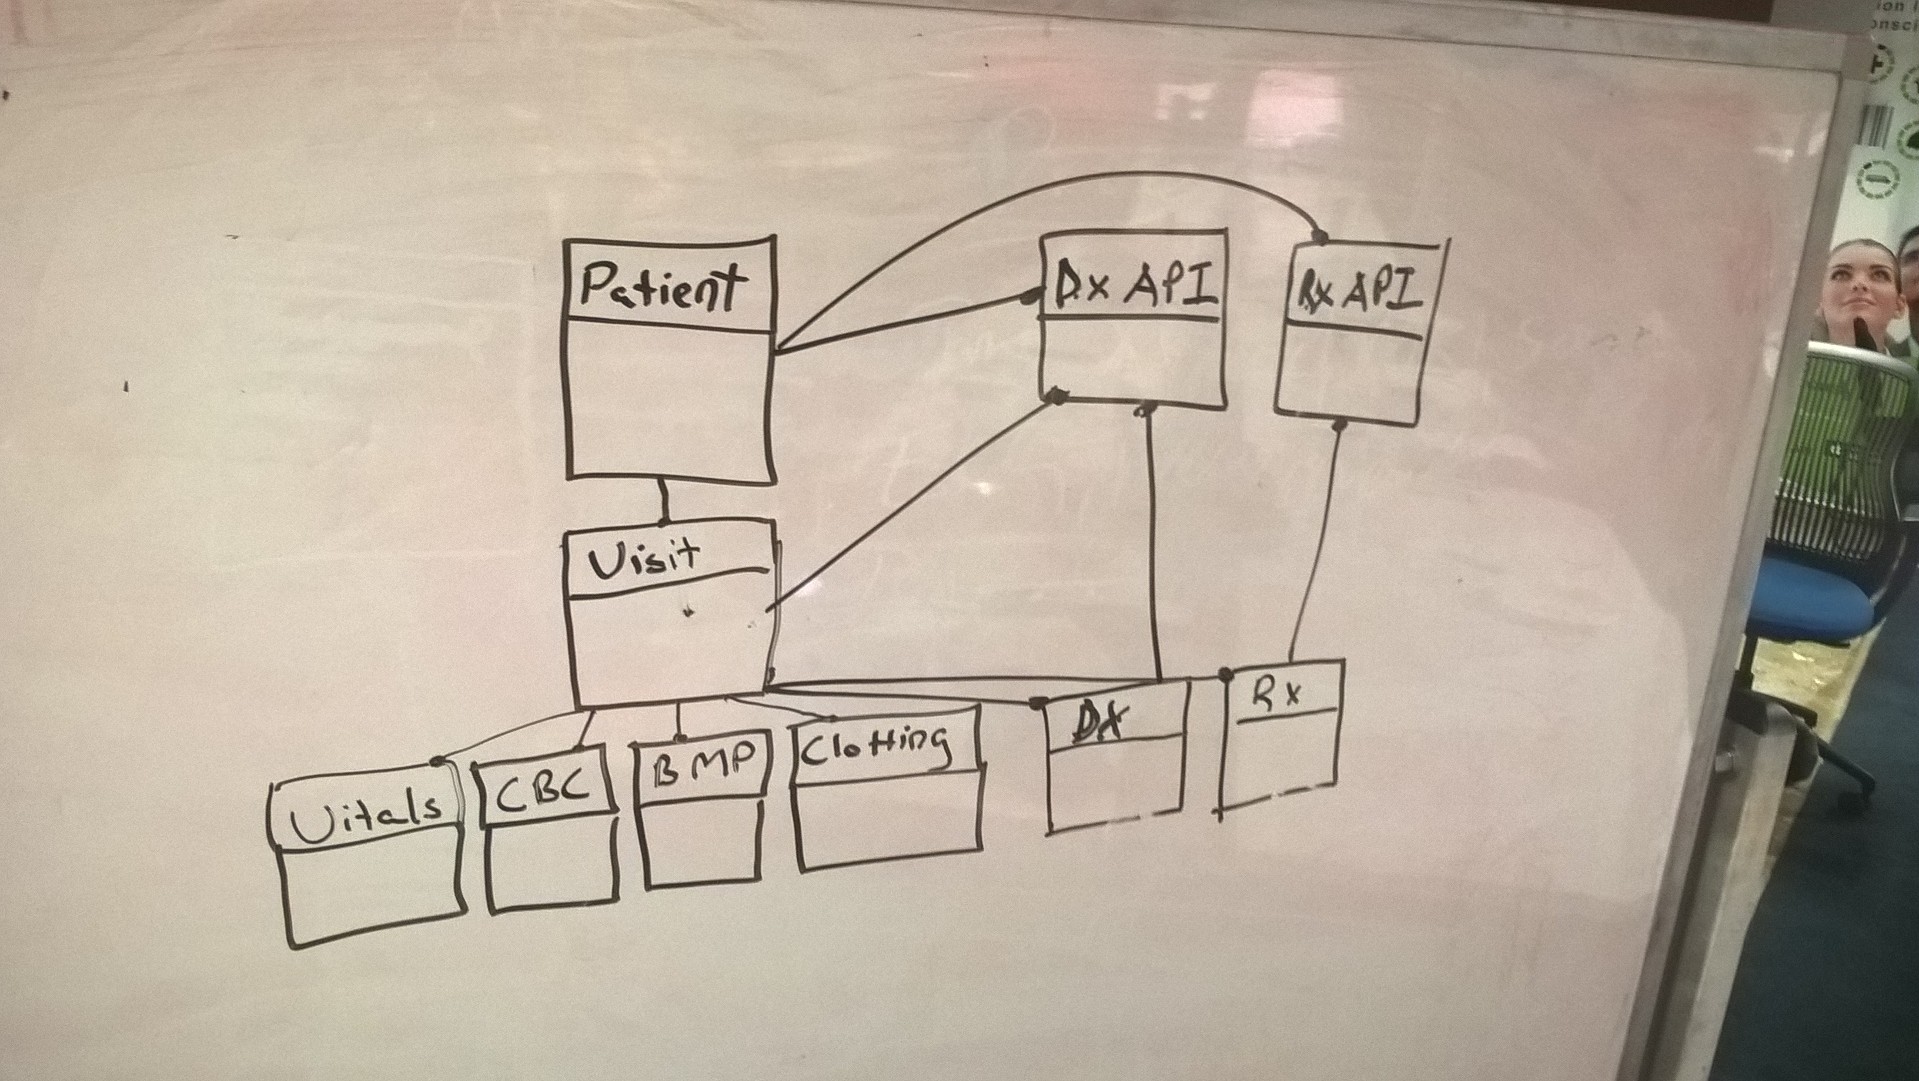 Patient
Dx API
Rx API
Visit
Vitals
CBC
BMP
Clotting
DX
Rx